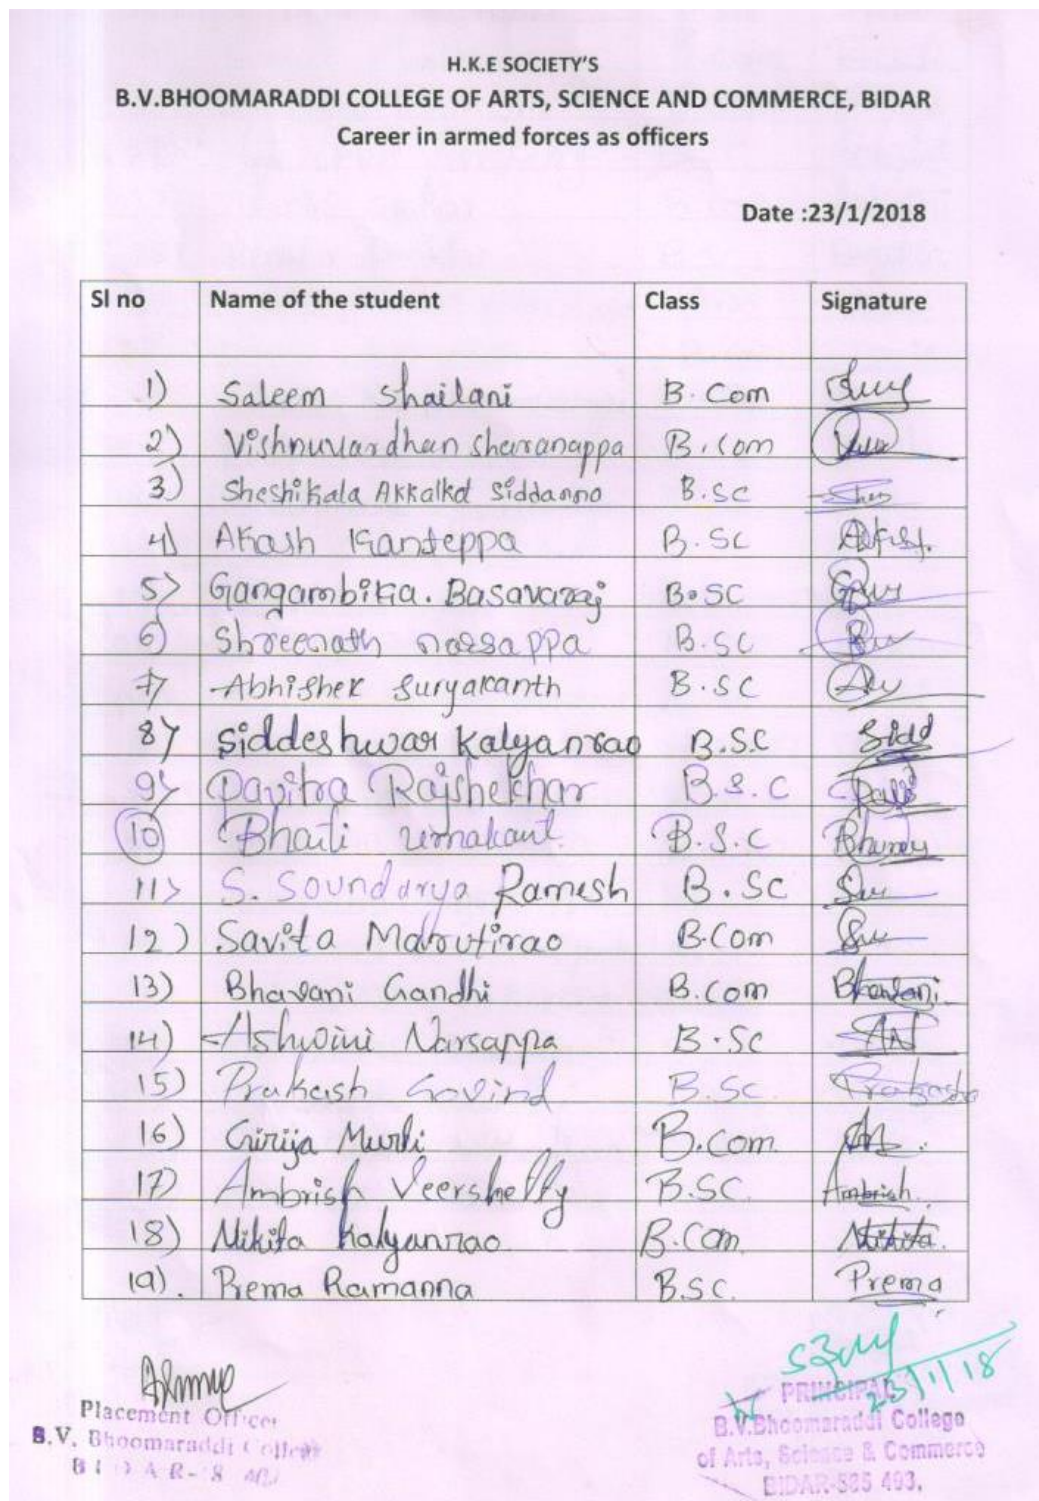 H.K.E SOCIETY'S
B.V.BHOOMARADDI COLLEGE OF ARTS, SCIENCE AND COMMERCE, BIDAR
Career in armed forces as officers
Date :23/1/2018
Sl no Name of the student Class Signature
1) Saleem Shailani B. Com
2) Vishnuvardhan Sharanappa B. Com
3) Sheshikala Akkalkot Siddanna B.SC
4) Akash Kanteppa B. SC
5) Gangambika. Basavaraj B.SC
6) Shreenath narsappa B.SC
7) Abhishek Suryakanth B.SC
8) Siddeshwar Kalyanrao B.SC Sidd
9) Pavitra Rajshekhar B.S.C
10 Bharti Umakant B.S.C
11) S. Soundarya Ramesh B.SC
12) Savita Marutirao B.Com
13) Bhavani Gandhi B.Com Bhavani
14) Ashwini Narsappa B.SC
15) Prakash Govind B.SC. Prakasha
16) Girija Murli B.Com.
17) Ambrish Veershetty B.SC. Ambrish.
18) Nikita Kalyanrao B.Com. Nikita.
19). Prema Ramanna B.SC. Prema
23/1/18
Placement Officer PRINCIPAL
B.V. Bhoomaraddi College B.V.Bhoomaraddi College
of Arts, Science & Commerce
BIDAR-585 403.